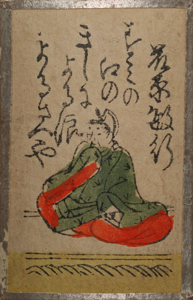 藤原敏行
すミの
江の
きしに
よる浪
よるさへや